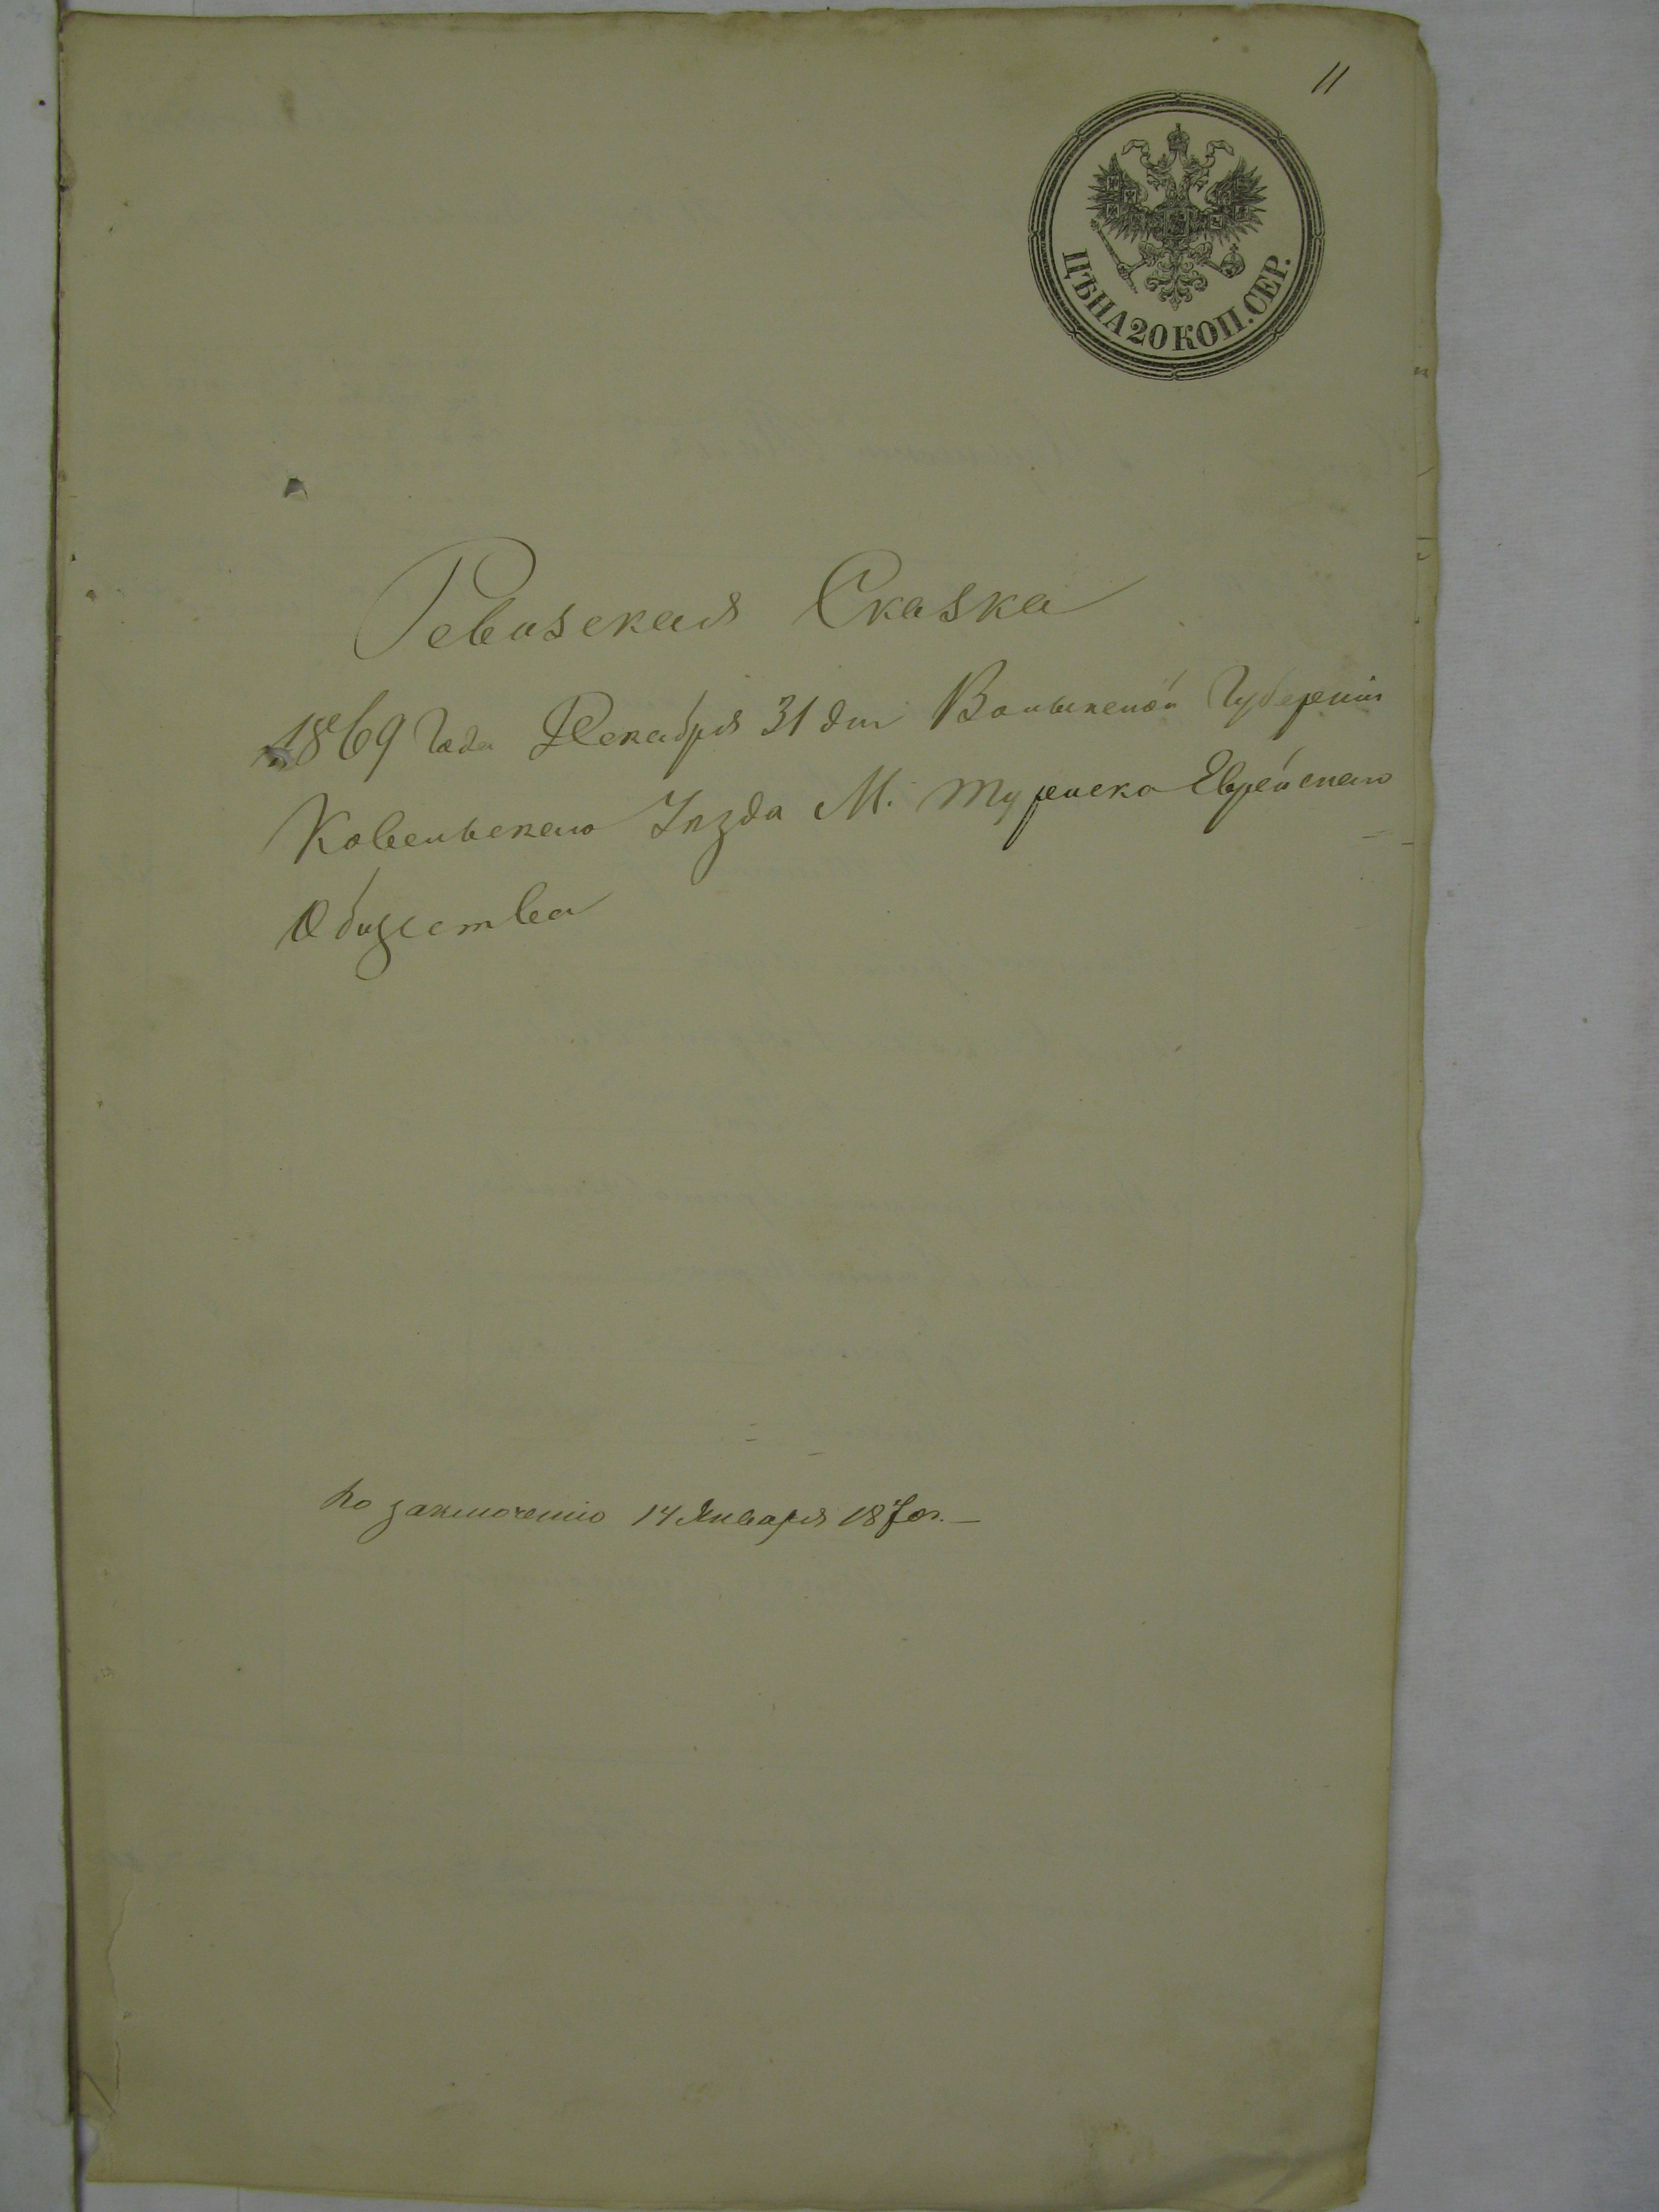 11
ЦѢНА 20 КОП. СЕР.
Ревизская Сказка
1869 Года Декабря 31 дня Волынской Губерніи
Ковельскаго Уѣзда М. Турійска Еврейскаго
Общества
По заключенію 14 Января 1870 г. —